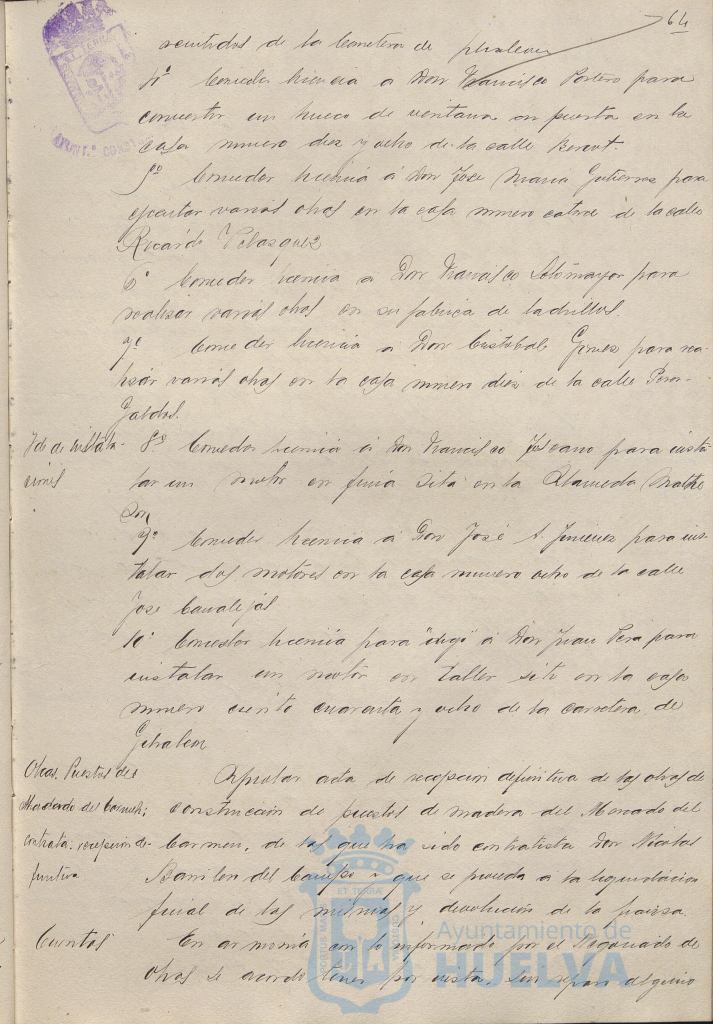 64
de la Carretera de
4º Conceder licencia a Don Francisco Portero para
convertir un hueco de ventana en puerta en la
casa número diez y ocho de la calle
5º Conceder licencia á Don José María Gutierrez para
ejecutar varias obras en la casa número catorce de la calle
Ricardo Velazquez
6º Conceder licencia a Don Francisco Sotomayor para
realizar varias obras en su fabrica de ladrillos.
7º Conceder licencia a Don Cristobal Gomez para rea-
lizar varias obras en la casa número diez de la calle Perez
Galdos.
Id de instala-
ciones
8º Conceder licencia á Don Francisco para insta-
lar un motor en finca sita en la Alameda
9º Conceder licencia á Don José A. Jimenez para ins-
talar dos motores en la casa número ocho de la calle
José Canalejas
10º Conceder licencia para "digo" á Don Juan Vera para
instalar un motor en taller sito en la casa
número ciento cuarenta y ocho de la carretera de
Gibraleon
Obras. Puestos del
Mercado del Carmen;
contrata; recepción de-
finitiva
Aprobar acta de recepcion definitiva de las obras de
construcción de puestos de madera del Mercado del
Carmen, de las que ha sido contratista Don Nicolas
del Campo y que se proceda á la liquidacion
final de las mismas y devolución de la fianza.
Cuentas
En armonía con lo informado por el Negociado de
Obras se acordó tener por vista, sin reparo alguno
Ayuntamiento de
HUELVA